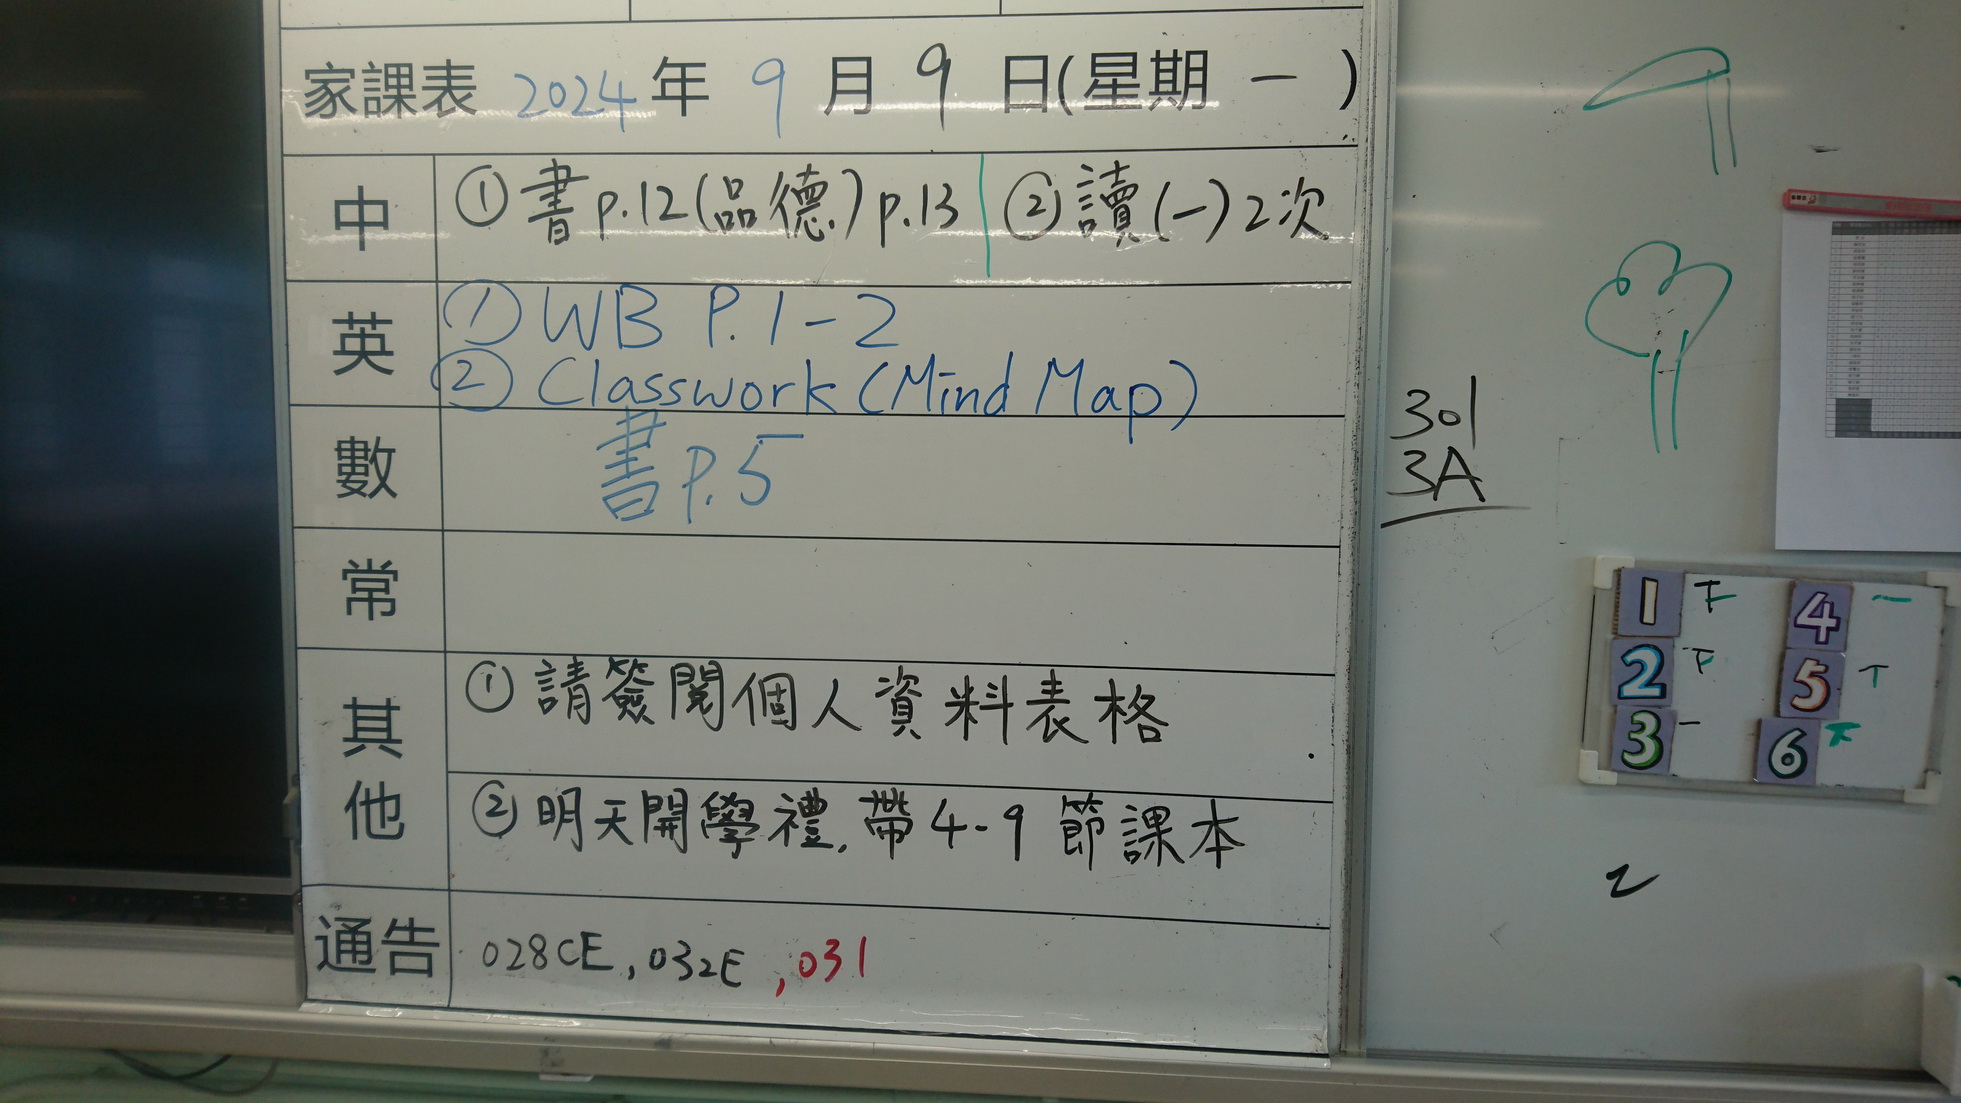 家課表 2024年 9月9日(星期一)
中 ①書p.12(品德)p.13 ②讀(一)2次
英 ①WB P.1-2
②Classwork(Mind Map)
數 書P.5
常
其他 ①請簽閱個人資料表格
②明天開學禮,帶4-9節課本
通告 028CE,032E,031
301
3A
1 下 4 一
2 下 5 T
3 一 6
2